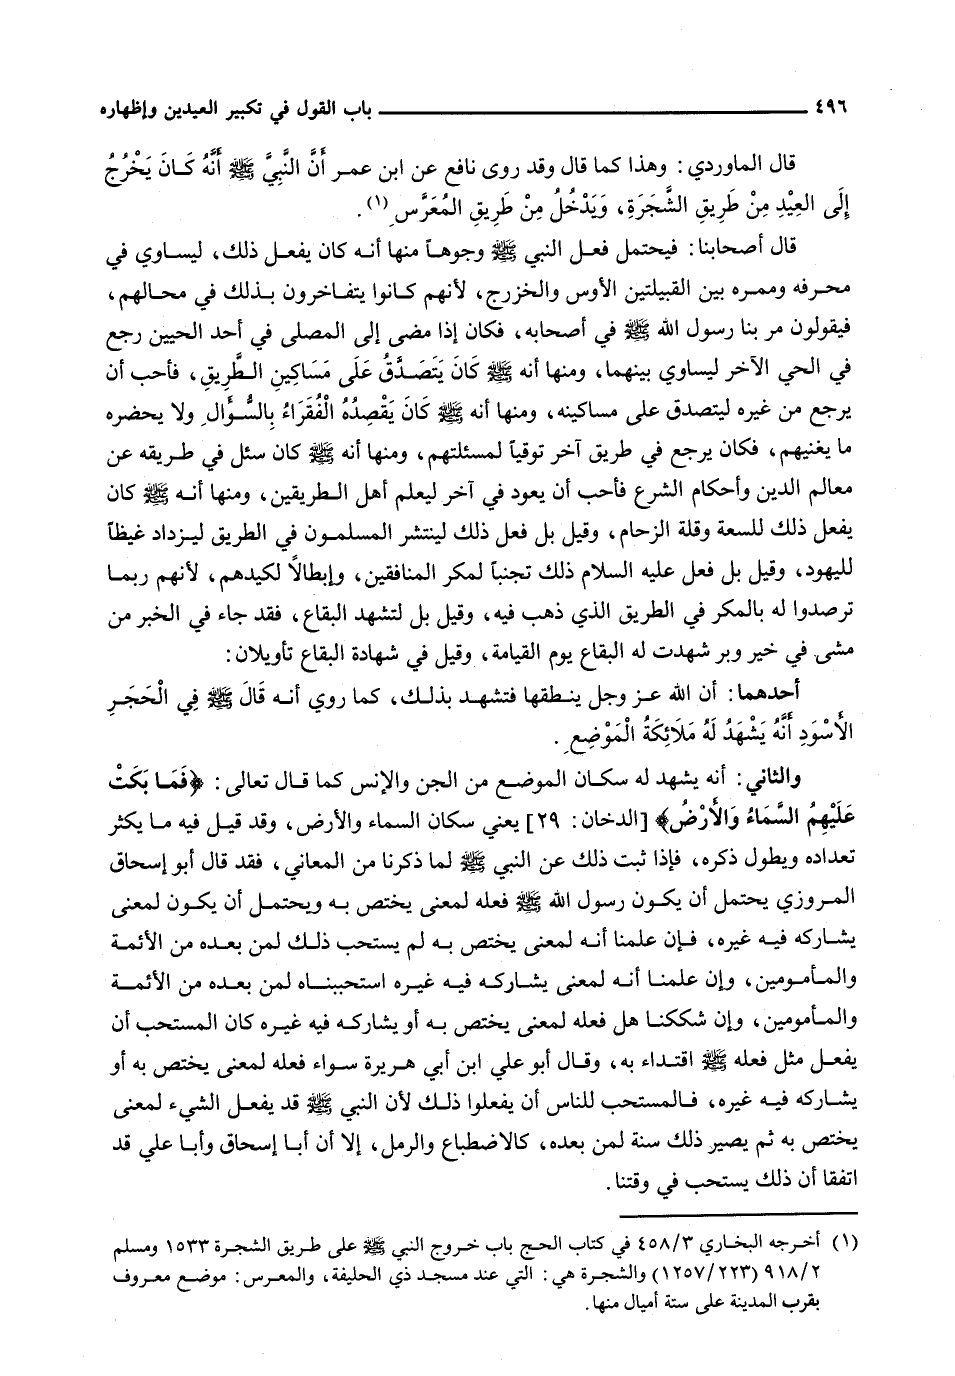 ٤٩٦ باب القول في تكبير العيدين وإظهاره
قال الماوردي: وهذا كما قال وقد روى نافع عن ابن عمر أَنَّ النَّبِيَّ ﷺ أَنَّهُ كَانَ يَخْرُجُ
إِلَى العِيْدِ مِنْ طَرِيقِ الشَّجَرَةِ، وَيَدْخُلُ مِنْ طَرِيقِ المُعَرَّسِ (١).
قال أصحابنا: فيحتمل فعل النبي ﷺ وجوهاً منها أنه كان يفعل ذلك، ليساوي في
محرفه وممره بين القبيلتين الأوس والخزرج، لأنهم كانوا يتفاخرون بذلك في محالهم،
فيقولون مر بنا رسول الله ﷺ في أصحابه، فكان إذا مضى إلى المصلى في أحد الحيين رجع
في الحي الآخر ليساوي بينهما، ومنها أنه ﷺ كَانَ يَتَصَدَّقُ عَلَى مَسَاكِينِ الطَّرِيقِ، فأحب أن
يرجع من غيره ليتصدق على مساكينه، ومنها أنه ﷺ كَانَ يَقْصِدُهُ الْفُقَرَاءُ بِالسُّؤَالِ ولا يحضره
ما يغنيهم، فكان يرجع في طريق آخر توقياً لمسئلتهم، ومنها أنه ﷺ كان سئل في طريقه عن
معالم الدين وأحكام الشرع فأحب أن يعود في آخر ليعلم أهل الطريقين، ومنها أنه ﷺ كان
يفعل ذلك للسعة وقلة الزحام، وقيل بل فعل ذلك لينتشر المسلمون في الطريق ليزداد غيظاً
لليهود، وقيل بل فعل عليه السلام ذلك تجنباً لمكر المنافقين، وإبطالاً لكيدهم، لأنهم ربما
ترصدوا له بالمكر في الطريق الذي ذهب فيه، وقيل بل لتشهد البقاع، فقد جاء في الخبر من
مشى في خير وبر شهدت له البقاع يوم القيامة، وقيل في شهادة البقاع تأويلان:
أحدهما: أن الله عز وجل ينطقها فتشهد بذلك، كما روي أنه قَالَ ﷺ فِي الْحَجَرِ
الأَسْوَدِ أَنَّهُ يَشْهَدُ لَهُ مَلَائِكَةُ الْمَوْضِعِ.
والثاني: أنه يشهد له سكان الموضع من الجن والإنس كما قال تعالى: ﴿فَمَا بَكَتْ
عَلَيْهِمُ السَّمَاءُ وَالأَرْضُ﴾ [الدخان: ٢٩] يعني سكان السماء والأرض، وقد قيل فيه ما يكثر
تعداده ويطول ذكره، فإذا ثبت ذلك عن النبي ﷺ لما ذكرنا من المعاني، فقد قال أبو إسحاق
المروزي يحتمل أن يكون رسول الله ﷺ فعله لمعنى يختص به ويحتمل أن يكون لمعنى
يشاركه فيه غيره، فإن علمنا أنه لمعنى يختص به لم يستحب ذلك لمن بعده من الأئمة
والمأمومين، وإن علمنا أنه لمعنى يشاركه فيه غيره استحببناه لمن بعده من الأئمة
والمأمومين، وإن شككنا هل فعله لمعنى يختص به أو يشاركه فيه غيره كان المستحب أن
يفعل مثل فعله ﷺ اقتداء به، وقال أبو علي ابن أبي هريرة سواء فعله لمعنى يختص به أو
يشاركه فيه غيره، فالمستحب للناس أن يفعلوا ذلك لأن النبي ﷺ قد يفعل الشيء لمعنى
يختص به ثم يصير ذلك سنة لمن بعده، كالاضطباع والرمل، إلا أن أبا إسحاق وأبا علي قد
اتفقا أن ذلك يستحب في وقتنا.
(١) أخرجه البخاري ٤٥٨/٣ في كتاب الحج باب خروج النبي ﷺ على طريق الشجرة ١٥٣٣ ومسلم
٩١٨/٢ (١٢٥٧/٢٢٣) والشجرة هي: التي عند مسجد ذي الحليفة، والمعرس: موضع معروف
بقرب المدينة على ستة أميال منها.